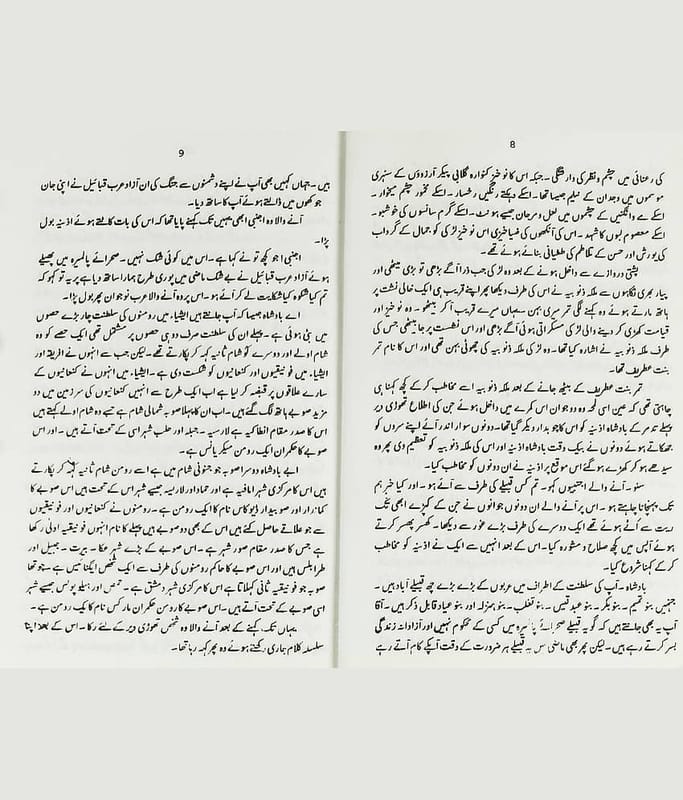 8
کی رعنائی میں چشم و نظر کی وارفتگی ۔ جبکہ اس کا نوخیز کنوارہ گلابی پیکر آرزوؤں کے سنہری
موسموں میں وجدان کے نیلم جیسا تھا۔ اسکے دہکتے رنگیں رخسار۔ اسکے مخمور چشم میخوار۔
اسکے کے چشموں میں لعل و مرجان جیسے ہونٹ۔ اسکے گرم سانسوں کی خوشبو۔
اسکے معصوم لبوں کا شہد۔ اس کی آنکھوں کی ضیا خیزی اس نوخیز لڑکی کو جمال کے گرداب
کی یورش اور حسن کے تلاطم کی طغیانی بنائے ہوئے تھے۔
پشتی دروازے سے داخل ہونے کے بعد وہ لڑکی جب ذرا آگے بڑھی تو بڑی میٹھی اور
پیار بھری نگاہوں سے ملکہ ذنوبیہ نے اس کی طرف دیکھا پھر اپنے قریب ہی ایک خالی نشست پر
ہاتھ مارتے ہوئے وہ کہنے لگی تمر میری بہن۔ یہاں میرے قریب آکر بیٹھو۔ وہ نوخیز اور
قیامت کھڑی کر دینے والی لڑکی مسکراتی ہوئی آگے بڑھی اور اس نشست پر جا بیٹھی جس کی
طرف ملکہ ذنوبیہ نے اشارہ کیا تھا۔ وہ لڑکی ملکہ ذنوبیہ کی چھوٹی بہن تھی اور اس کا نام تمر
بنت عطریف تھا۔
تمر بنت عطریف کے بیٹھ جانے کے بعد ملکہ ذنوبیہ اسے مخاطب کر کے کچھ کہنا ہی
چاہتی تھی کہ عین اسی لمحہ وہ دو جوان اس کمرے میں داخل ہوئے جن کی اطلاع تھوڑی دیر
پہلے تدمر کے بادشاہ اذنیہ کو اس کا چوبدار دیکر گیا تھا۔ دونوں سوار اندر آئے اپنے سردں کو
جھکاتے ہوئے دونوں نے بیک وقت بادشاہ اذنیہ اور اس کی ملکہ ذنوبیہ کو تعظیم دی پھر وہ
سیدھے ہو کر کھڑے ہو گئے اس موقع پر اذنیہ نے ان دونوں کو مخاطب کیا۔
سنو۔ آنے والے اجنبیوں کہو۔ تم کس قبیلے کی طرف سے آئے ہو۔ اور کیا خبر ہم
تک پہنچانا چاہتے ہو۔ اس پر آنے والے ان دونوں جوانوں نے جن کے کپڑے ابھی تک
ریت سے اٹے ہوئے تھے ایک دوسرے کی طرف بڑے غور سے دیکھا۔ کھسر پھسر کرتے
ہوئے آپس میں کچھ صلاح و مشورہ کیا۔ اس کے بعد انہیں سے ایک نے اذنیہ کو مخاطب
کر کے کہنا شروع کیا۔
بادشاہ۔ آپ کی سلطنت کے اطراف میں عربوں کے بڑے بڑے چھ قبیلے آباد ہیں۔
جنہیں بنو تمیم۔ بنو بکر۔ بنو عبد قیس۔ بنو تغلب۔ بنو حنزلہ اور بنو عیاد قابل ذکر ہیں۔ آقا
آپ یہ بھی جانتے ہیں کہ گو یہ قبیلے صحرائے پالمیرہ میں کسی کے محکوم نہیں اور آزادانہ زندگی
بسر کرتے رہے ہیں۔ لیکن پھر بھی ماضی میں یہ قبیلے ہر ضرورت کے وقت آپکے کام آتے رہے
9
ہیں۔ جہاں کہیں بھی آپ نے اپنے دشمنوں سے جنگ کی ان آزاد عرب قبائیل نے اپنی جان
جوکھوں میں ڈالتے ہوئے آپ کا ساتھ دیا۔
آنے والا وہ اجنبی ابھی یہیں تک کہنے پایا تھا کہ اس کی بات کاٹتے ہوئے اذنیہ بول
پڑا۔
اجنبی! جو کچھ تو نے کہا ہے۔ اس میں کوئی شک نہیں۔ صحرائے پالمیرہ میں پھیلے
ہوئے آزاد عرب قبائیل نے بے شک ماضی میں پوری طرح ہمارا ساتھ دیا ہے پر یہ تو کہو کہ
تم کیا شکوہ کیا شکایت لے کر آئے ہو۔ اس پر وہ آنے والا عرب نوجوان پھر بول پڑا۔
اے بادشاہ جیسا کہ آپ جانتے ہیں ایشیاء میں رومنوں کی سلطنت چار بڑے حصوں
میں بنی ہوئی ہے۔ پہلے ان کی سلطنت صرف دو ہی حصوں پر مشتمل تھی ایک حصے کو وہ
شام اولے اور دوسرے کو شام ثانیہ کہہ کر پکارتے تھے۔ لیکن جب سے انہوں نے افریقہ اور
ایشیاء میں فونیقیوں اور کنعانیوں کو شکست دی ہے۔ ایشیاء میں انہوں نے کنعانیوں کے
سارے علاقوں پر قبضہ کر لیا ہے اب ایک طرح سے انہیں کنعانیوں کی سرزمین میں دو
مزید صوبے ہاتھ لگ گئے ہیں۔ اب ان کا پہلا صوبہ شمالی شام ہے جسے وہ شام اولے کہتے ہیں
اس کا صدر مقام انطاکیہ ہے لارسیہ۔ جبلہ اور حلب شہر اسی کے تحت آتے ہیں۔ اور اس
صوبے کا حکمران ایک رومن میکریانس ہے۔
اے بادشاہ دوسرا صوبہ جو جنوبی شام میں ہے اسے رومن شام ثانیہ کہہ کر پکارتے
ہیں اس کا مرکزی شہر افامیہ ہے اور حما اور لاریسہ جیسے شہر اس کے تحت ہیں اس صوبے کا
کماندار اور صوبیدار ڈیوکاس نام کا ایک رومن ہے۔ رومنوں نے کنعانیوں اور فونیقیوں
سے جو علاقے حاصل کئے ہیں اس کے بھی دو صوبے ہیں پہلے کا نام انہوں نے فونیقیہ اولی رکھا
ہے جس کا صدر مقام صور شہر ہے۔ اس صوبے کے بڑے شہر عکا۔ بیرت۔ جبیل اور
طرابلس ہیں اور اس صوبے کا حاکم رومنوں کی طرف سے ایک شخص ایکٹا نیس ہے۔ چوتھا
صوبہ جو فونیقیہ ثانی کہلاتا ہے اس کا مرکزی شہر دمشق ہے۔ حمص اور ہیلوپولس جیسے شہر
اسی صوبے کے تحت آتے ہیں۔ اس صوبے کا رومن حکمران مارکس نام کا ایک رومن ہے۔
یہاں تک کہنے کے بعد آنے والا وہ شخص تھوڑی دیر کے لئے رکا۔ اس کے بعد اپنا
سلسلہ کلام جاری رکھتے ہوئے وہ پھر کہہ رہا تھا۔